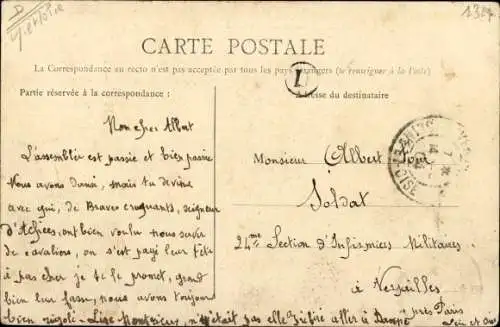 D
1327
CARTE POSTALE
La Correspondance au recto n'est pas acceptée par tous les pays étrangers (se renseigner à la Poste)
Partie réservée à la correspondance :
Adresse du destinataire
L
Mon cher Albert
L'assemblée est passée et bien passée
Nous avons dansé, mais tu devine
avec qui, de Braves seigneur
d'Achées, ont bien voulu nous servir
de cavaliers, on s'est payé leur tête
à pas cher je te le promet, grand
bien leur fasse, nous avons toujours
bien rigolé - n'était pas elle aller à
Monsieur Albert
Soldat
24me Section d'Infirmiers Militaires
à Versailles
près Paris